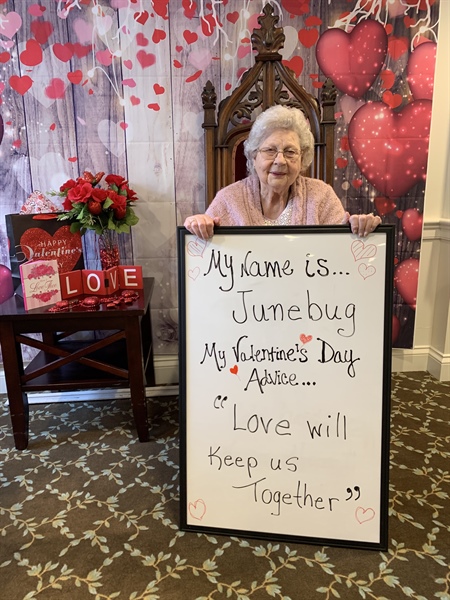 HAPPY
Valentine's
LOVE
My Name is...
Junebug
My Valentine's Day
Advice...
"Love will
Keep us
Together"